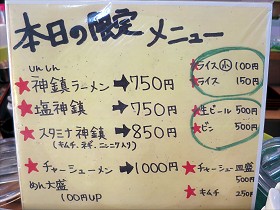 本日の限定メニュー
しんしん
★神鎮ラーメン➡750円
★塩神鎮➡750円
★スタミナ神鎮➡850円
(キムチ、ネギ、ニンニク入り)
★チャーシューメン➡1000円
めん大盛
100円UP
★ライス小 100円
★ライス 150円
★生ビール 500円
★ビン 500円
★チャーシュー皿盛
500円
★キムチ 250円